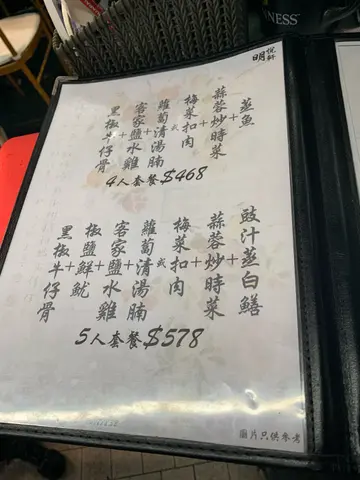 NESS
明悅軒
蒸魚
+
蒜蓉炒時菜
+
梅菜扣肉
或
蘿蔔清湯腩
+
客家鹽水雞
+
黑椒牛仔骨
4人套餐$468
豉汁蒸白鱔
+
蒜蓉炒時菜
+
梅菜扣肉
或
蘿蔔清湯腩
+
客家鹽水雞
+
椒鹽鮮魷
+
黑椒牛仔骨
5人套餐$578
圖片只供參考